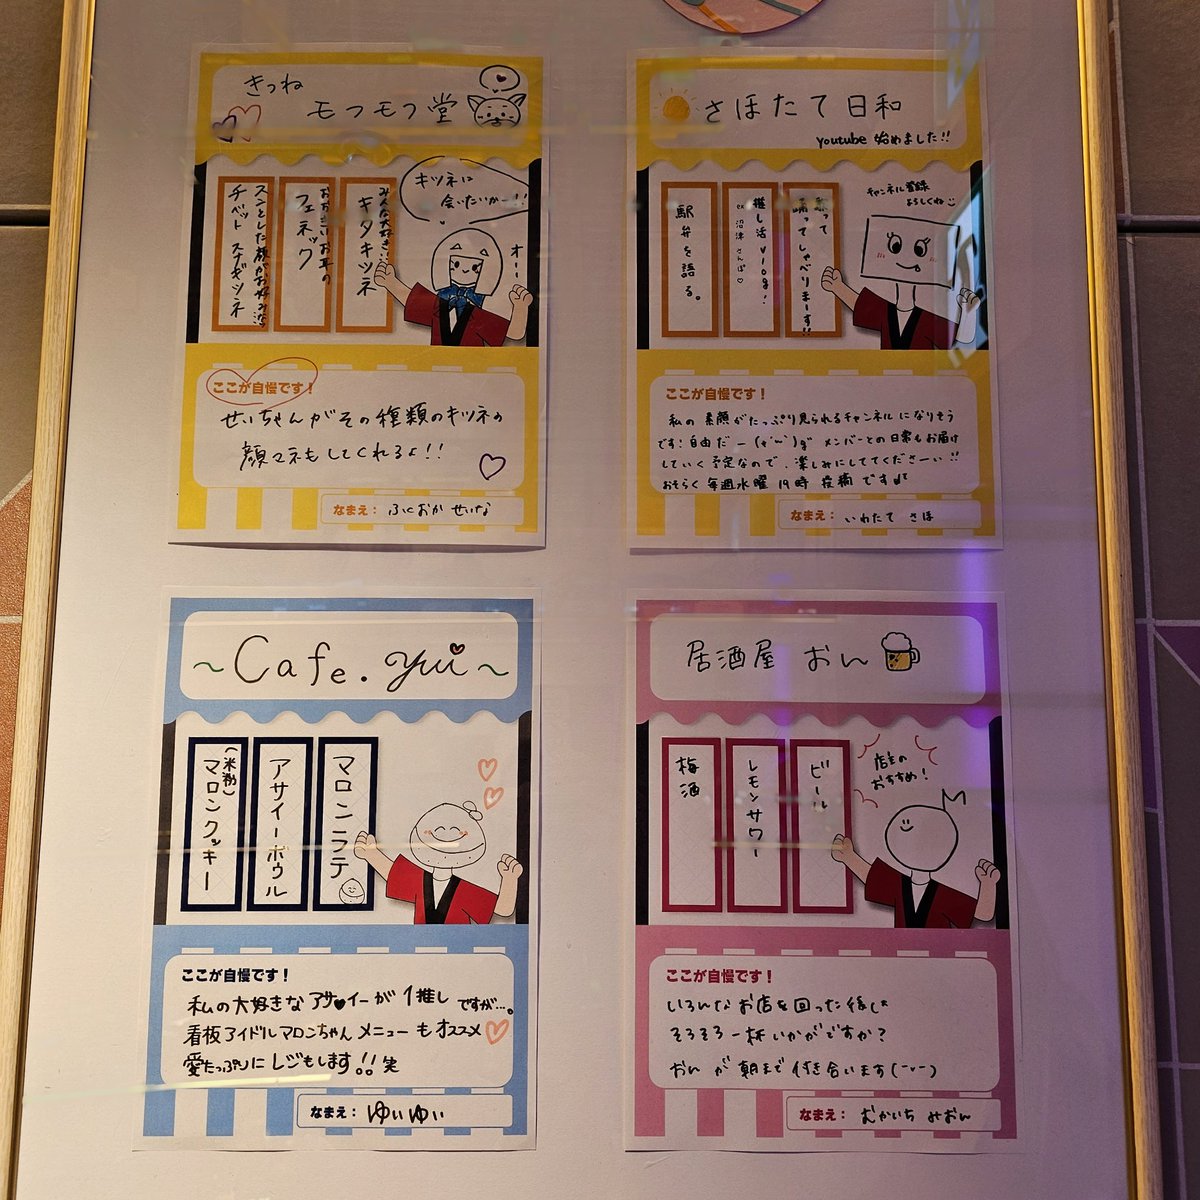 きつね
モフモフ堂
みんな大好き!!
キタキツネ
おおきいお耳の
フェネック
スンとした顔がお好みなら
チベットスナギツネ
キツネに
会いたいかー!!
オー!
ここが自慢です！
せいちゃんがその種類のキツネの
顔マネもしてくれるよ!!
なまえ： ふくおか せいな
さほたて日和
youtube 始めました!!
歌って
踊ってしゃべりまーす!!
推し活vlog!
ex 沼津さんぽ♡
駅弁を語る。
チャンネル登録
よろしくね
ここが自慢です！
私の素顔がたっぷり見られるチャンネルになりそう
です!自由だー メンバーとの日常もお届け
していく予定なので、楽しみにしててくださーい!!
おそらく毎週水曜19時投稿です
なまえ： いわたて さほ
～Cafe.yui～
マロンラテ
アサイーボウル
(米粉)
マロンクッキー
ここが自慢です！
私の大好きなアサ♥イーが1推しですが…。
看板アイドルマロンちゃんメニューもオススメ♡
愛たっぷりにレジもします!!笑
なまえ： ゆいゆい
居酒屋 おん
ビール
レモンサワー
梅酒
店主の
おすすめ!
ここが自慢です！
いろんなお店を回った後に
そろそろ一杯いかがですか?
おんが朝まで付き合います(ｰvｰ)
なまえ： むかいち みおん